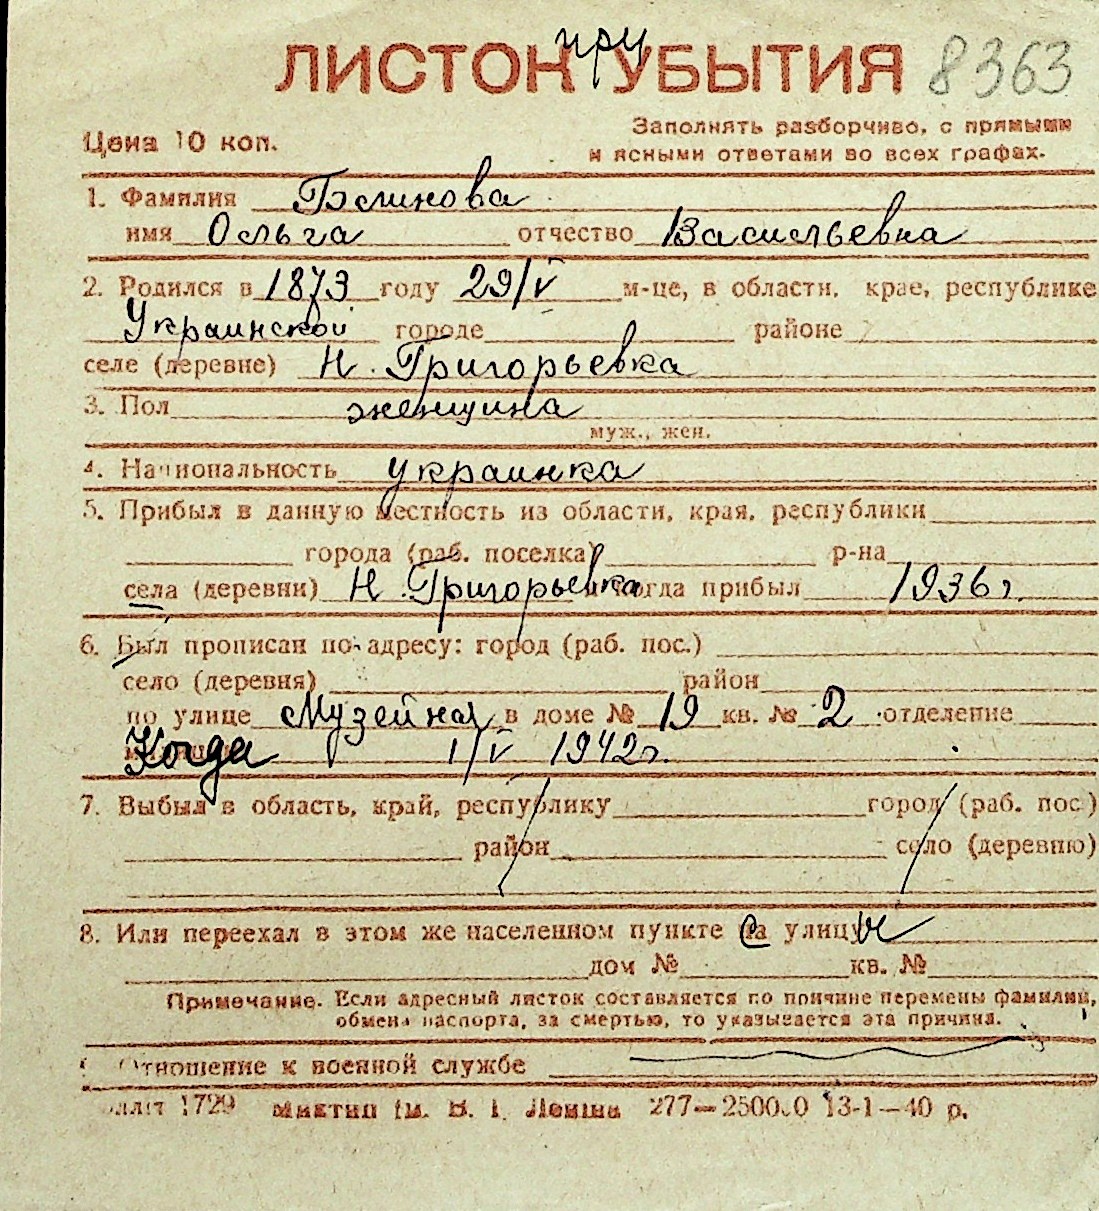 ЛИСТОК при УБЫТИЯ 8363
Цена 10 коп.
Заполнять разборчиво, с прямыми
и ясными ответами во всех графах.
1. Фамилия Блинова
имя Ольга отчество Васильевна
2. Родился в 1873 году 29/V м-це, в области, крае, республике
Украинской городе районе
селе (деревне) Н. Григорьевка
3. Пол женщина
муж., жен.
4. Национальность украинка
5. Прибыл в данную местность из области, края, республики
города (раб. поселка) р-на
села (деревни) Н. Григорьевка и когда прибыл 1936 г.
6. Был прописан по адресу: город (раб. пос.)
село (деревня) район
по улице Музейная в доме № 19 кв. № 2 отделение
Когда 1/V 1942 г.
7. Выбыл в область, край, республику город (раб. пос.)
район село (деревню)
8. Или переехал в этом же населенном пункте с улицы
дом № кв. №
Примечание. Если адресный листок составляется по причине перемены фамилии,
обмена паспорта, за смертью, то указывается эта причина.
Отношение к военной службе
1729 В. І. Леніна 277—250000 13-1—40 р.